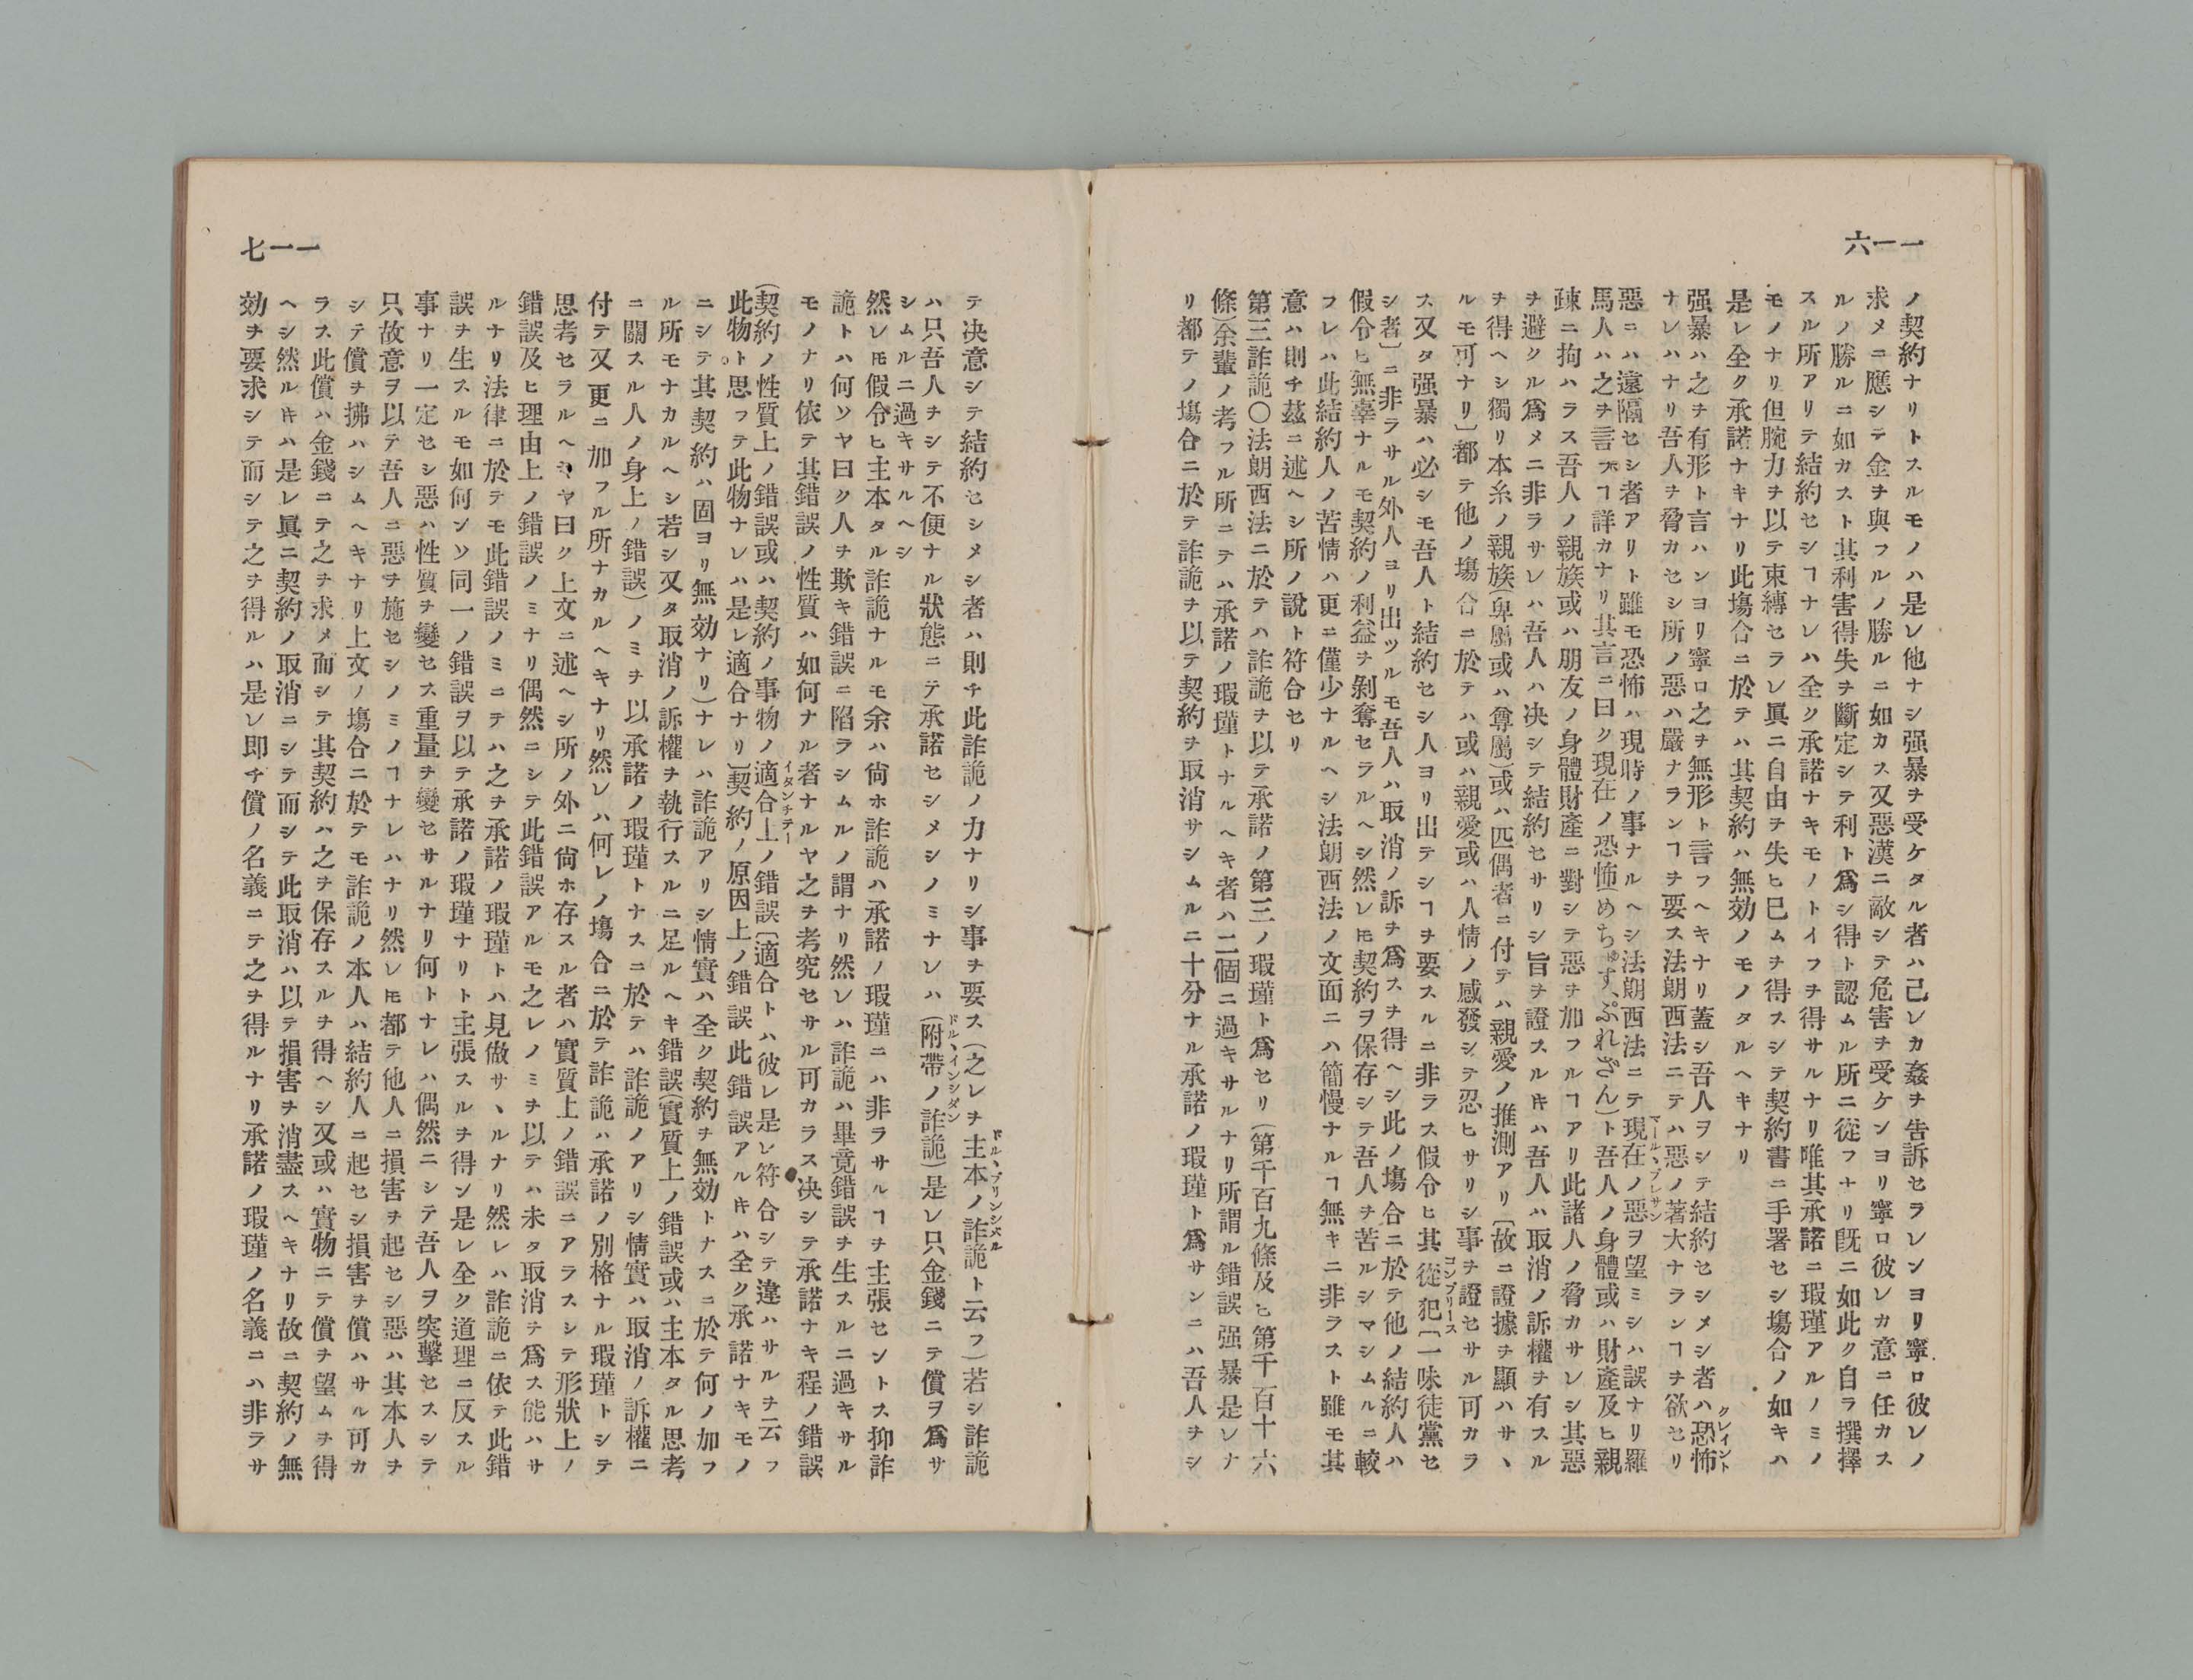 一一六
ノ契約ナリトスルモノハ是レ他ナシ强暴ヲ受ケタル者ハ己レカ姦ヲ告訴セラレンヨリ寧ロ彼レノ
求メニ應シテ金ヲ與フルノ勝ルニ如カス又惡漢ニ敵シテ危害ヲ受ケンヨリ寧ロ彼レカ意ニ任カス
ルノ勝ルニ如カスト其利害得失ヲ斷定シテ利ト爲シ得ト認ムル所ニ從フナリ旣ニ如此ク自ラ撰擇
スル所アリテ結約セシヿナレハ全ク承諾ナキモノトイフヲ得サルナリ唯其承諾ニ瑕瑾アルノミノ
モノナリ但腕力ヲ以テ束縛セラレ眞ニ自由ヲ失ヒ已ムヲ得スシテ契約書ニ手署セシ塲合ノ如キハ
是レ全ク承諾ナキナリ此塲合ニ於テハ其契約ハ無効ノモノタルヘキナリ
强暴ハ之ヲ有形ト言ハンヨリ寧ロ之ヲ無形ト言フヘキナリ蓋シ吾人ヲシテ結約セシメシ者ハ恐怖クレイント
ナレハナリ吾人ヲ脅カセシ所ノ惡ハ嚴ナランヿヲ要ス法朗西法ニテハ惡ノ著大ナランヿヲ欲セリ
惡ニハ遠隔セシ者アリト雖モ恐怖ハ現時ノ事ナルヘシ法朗西法ニテ現在ノ惡マール、プレサンヲ望ミシハ誤ナリ羅
馬人ハ之ヲ言フヿ詳カナリ其言ニ曰ク現在ノ恐怖(めちゆす、ぷれざん)ト吾人ノ身體或ハ財產及ヒ親
疎ニ拘ハラス吾人ノ親族或ハ朋友ノ身體財產ニ對シテ惡ヲ加フルヿアリ此諸人ノ脅カサレシ其惡
ヲ避クル爲メニ非ラサレハ吾人ハ决シテ結約セサリシ旨ヲ證スル𪜈ハ吾人ハ取消ノ訴權ヲ有スル
ヲ得ヘシ獨リ本系ノ親族(卑屬或ハ尊屬)或ハ匹偶者ニ付テハ親愛ノ推測アリ〔故ニ證據ヲ顯ハサヽ
ルモ可ナリ〕都テ他ノ塲合ニ於テハ或ハ親愛或ハ人情ノ感發シテ忍ヒサリシ事ヲ證セサル可カラ
ス又タ强暴ハ必シモ吾人ト結約セシ人ヨリ出テシヿヲ要スルニ非ラス假令ヒ其從犯コンプリース〔一味徒黨セ
シ者〕ニ非ラサル外人ヨリ出ツルモ吾人ハ取消ノ訴ヲ爲スヲ得ヘシ此ノ塲合ニ於テ他ノ結約人ハ
假令ヒ無辜ナルモ契約ノ利益ヲ剝奪セラルヘシ然レ𪜈契約ヲ保存シテ吾人ヲ苦ルシマシムルニ較
フレハ此結約人ノ苦情ハ更ニ僅少ナルヘシ法朗西法ノ文面ニハ簡慢ナルヿ無キニ非ラスト雖モ其
意ハ則チ玆ニ述ヘシ所ノ說ト符合セリ
第三詐詭〇法朗西法ニ於テハ詐詭ヲ以テ承諾ノ第三ノ瑕瑾ト爲セリ(第千百九條及ヒ第千百十六
條)余輩ノ考フル所ニテハ承諾ノ瑕瑾トナルヘキ者ハ二個ニ過キサルナリ所謂ル錯誤强暴是レナ
リ都テノ塲合ニ於テ詐詭ヲ以テ契約ヲ取消サシムルニ十分ナル承諾ノ瑕瑾ト爲サンニハ吾人ヲシ
一一七
テ决意シテ結約セシメシ者ハ則チ此詐詭ノ力ナリシ事ヲ要ス(之レヲ主本ノ詐詭ドル、プリンシペルト云フ)若シ詐詭
ハ只吾人ヲシテ不便ナル狀態ニテ承諾セシメシノミナレハ(附帶ノ詐詭ドル、インシダン)是レ只金錢ニテ償ヲ爲サ
シムルニ過キサルヘシ
然レ𪜈假令ヒ主本タル詐詭ナルモ余ハ尙ホ詐詭ハ承諾ノ瑕瑾ニハ非ラサルヿヲ主張セントス抑詐
詭トハ何ソヤ曰ク人ヲ欺キ錯誤ニ陷ラシムルノ謂ナリ然レハ詐詭ハ畢竟錯誤ヲ生スルニ過キサル
モノナリ依テ其錯誤ノ性質ハ如何ナル者ナルヤ之ヲ考究セサル可カラス决シテ承諾ナキ程ノ錯誤
(契約ノ性質上ノ錯誤或ハ契約ノ事物ノ適合上イダンチテーノ錯誤〔適合トハ彼レ是レ符合シテ違ハサルヲ云フ
此物ト思フテ此物ナレハ是レ適合ナリ〕契約ノ原因上ノ錯誤此錯誤アル𪜈ハ全ク承諾ナキモノ
ニシテ其契約ハ固ヨリ無効ナリ)ナレハ詐詭アリシ情實ハ全ク契約ヲ無効トナスニ於テ何ノ加フ
ル所モナカルヘシ若シ又タ取消ノ訴權ヲ執行スルニ足ルヘキ錯誤(實質上ノ錯誤或ハ主本タル思考
ニ關スル人ノ身上ノ錯誤)ノミヲ以承諾ノ瑕瑾トナスニ於テハ詐詭ノアリシ情實ハ取消ノ訴權ニ
付テ又更ニ加フル所ナカルヘキナリ然レハ何レノ塲合ニ於テ詐詭ハ承諾ノ別格ナル瑕瑾トシテ
思考セラルヘキヤ曰ク上文ニ述ヘシ所ノ外ニ尙ホ存スル者ハ實質上ノ錯誤ニアラスシテ形狀上ノ
錯誤及ヒ理由上ノ錯誤ノミナリ偶然ニシテ此錯誤アルモ之レノミヲ以テハ未タ取消ヲ爲ス能ハサ
ルナリ法律ニ於テモ此錯誤ノミニテハ之ヲ承諾ノ瑕瑾トハ見做サヽルナリ然レハ詐詭ニ依テ此錯
誤ヲ生スルモ如何ンソ同一ノ錯誤ヲ以テ承諾ノ瑕瑾ナリト主張スルヲ得ン是レ全ク道理ニ反スル
事ナリ一定セシ惡ハ性質ヲ變セス重量ヲ變セサルナリ何トナレハ偶然ニシテ吾人ヲ突擊セスシテ
只故意ヲ以テ吾人ニ惡ヲ施セシノミノヿナレハナリ然レ𪜈都テ他人ニ損害ヲ起セシ惡ハ其本人ヲ
シテ償ヲ拂ハシムヘキナリ上文ノ塲合ニ於テモ詐詭ノ本人ハ結約人ニ起セシ損害ヲ償ハサル可カ
ラス此償ハ金錢ニテ之ヲ求メ而シテ其契約ハ之ヲ保存スルヲ得ヘシ又或ハ實物ニテ償ヲ望ムヲ得
ヘシ然ル𪜈ハ是レ眞ニ契約ノ取消ニシテ而シテ此取消ハ以テ損害ヲ消盡スヘキナリ故ニ契約ノ無
効ヲ要求シテ而シテ之ヲ得ルハ是レ即チ償ノ名義ニテ之ヲ得ルナリ承諾ノ瑕瑾ノ名義ニハ非ラサ